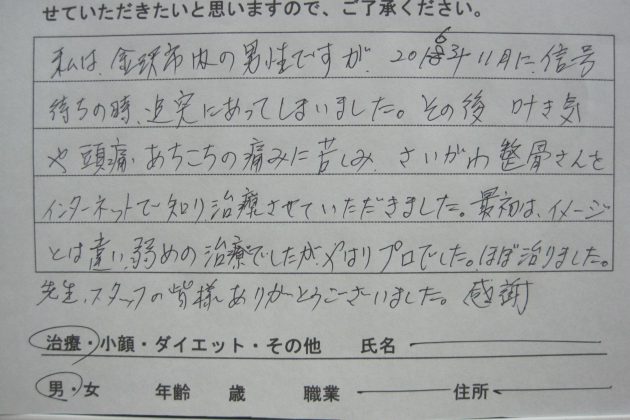 せていただきたいと思いますので、ご了承ください。
私は、金沢市内の男性ですが、2016年11月に、信号
待ちの時、追突にあってしまいました。その後 吐き気
や頭痛、あちこちの痛みに苦しみ、さいがわ整骨さんを
インターネットで知り治療させていただきました。最初は、イメージ
とは違い、弱めの治療でしたが、やはりプロでした。ほぼ治りました。
先生、スタッフの皆様ありがとうございました。 感謝
治療・小顔・ダイエット・その他 氏名
男・女 年齢 歳 職業 住所